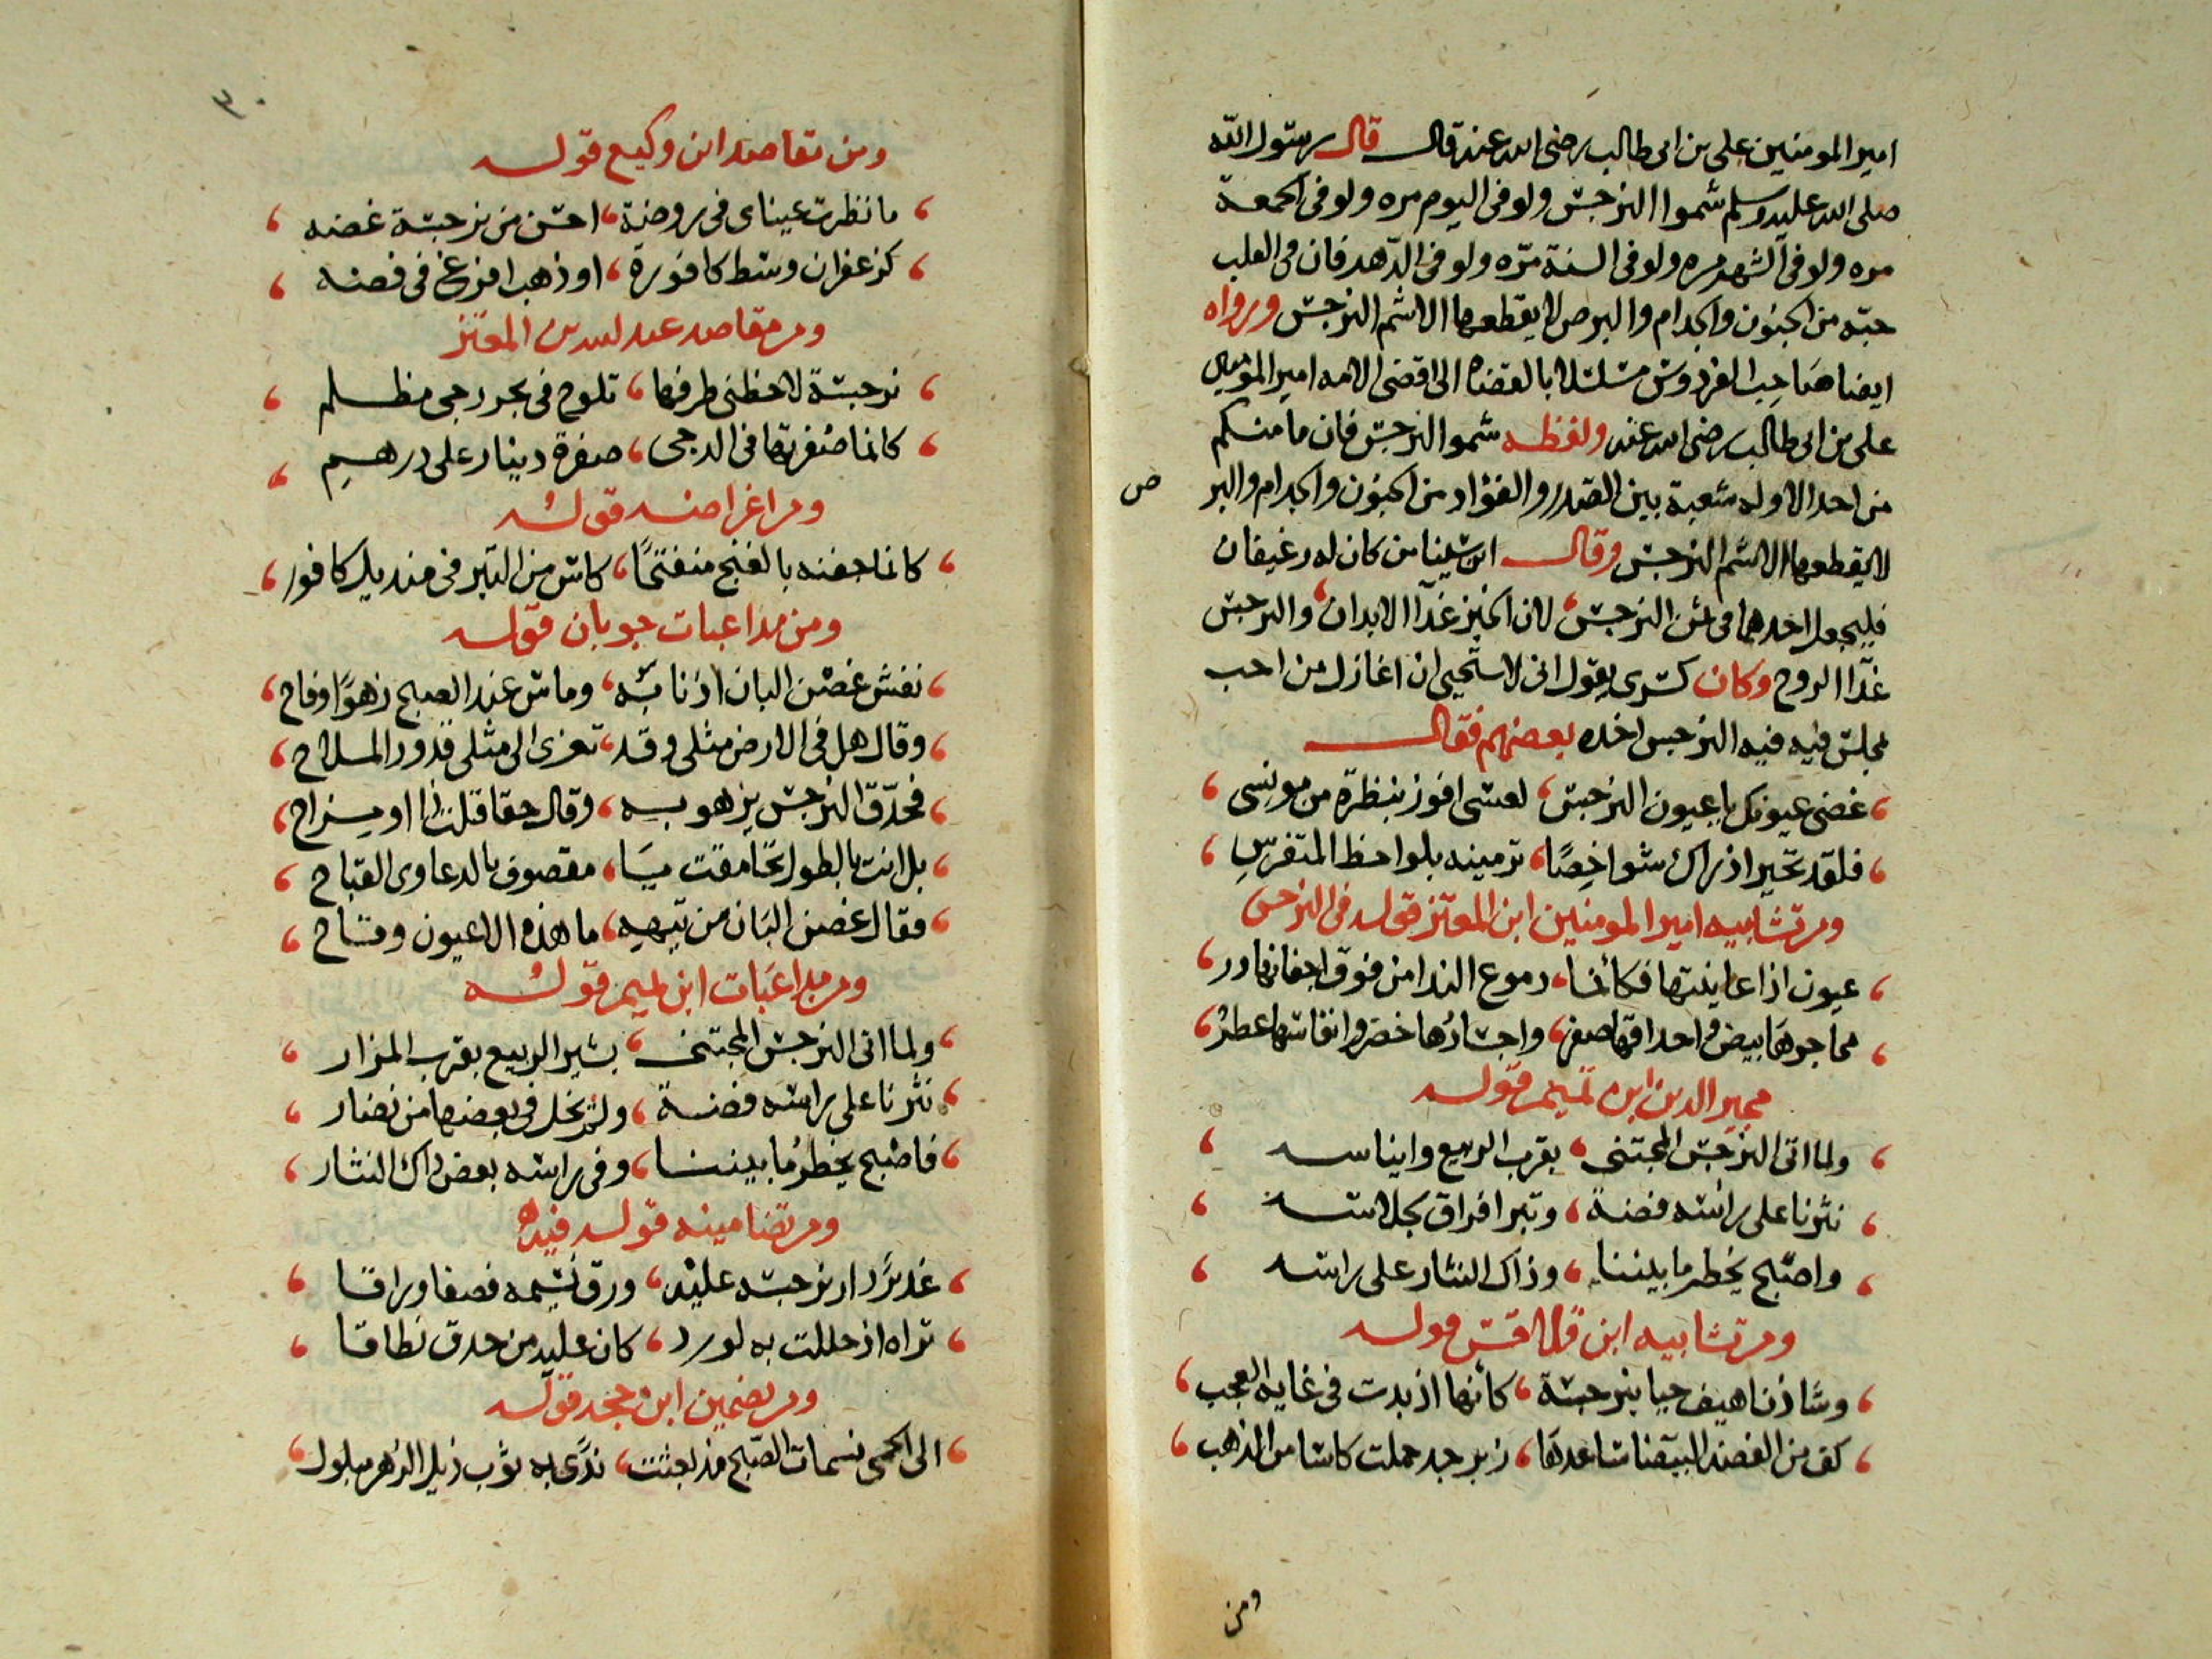 امير المومنين على بن ابى طالب رضى الله عنه قال قال رسول الله
صلى الله عليه وسلم شموا النرجس ولو فى اليوم مره ولو فى الجمعة
مره ولو فى الشهر مره ولو فى السنة مرّه ولو فى الدّهر فان فى القلب
حبّه من الجنون والجدام والبرص لا يقطعها الا شم النرجس ورواه
ايضا صَاحِب الفردوس مسلسلا بالقضاه الى اقضى الامه امير المومنين
على بن ابى طالب رضى الله عنه ولفظه شموا النرجس فان ما منكم
من احد الا وله شعبة بين الصّدر والفؤاد من الجنون والجدام والبر
ص
لا يقطعها الا شم النرجس وقال ابن سينا من كان له رغيفان
فليجعل احدهما فى ثمن النرجس، لان الخبز غذآ الابدان، والنرجس
غذآ الروح وكان كسرى يقول انى لاستحيى ان اغازل من احب
مجلس فيه فيه النرجس اخذه بعضهم فقال
، غضى عيونك يا عيون النرجس، لعسى افوز بنظرة من مونسى ،
، فلقد تحير اذ راك شواخِصًا، ترمينه بلواحظ المتفرّسِ ،
ومن تشابيه امير المومنين ابن المعتز قوله فى النرجس
، عيون اذا عاينتها فكأنما، دموع الندا من فوق اجفانها در ،
، محاجرهَا بيض واحداقها صفر، واجسَادُها خضر وانفاسها عطرُ ،
مجير الدين ابن تميم قوله
، ولما اتى النرجس المجتنى ، بقرب الربيع وايناسه ،
، نثرنا على راسه فضة ، وتبر افراق بجلاسه ،
، واصبح يخطر ما بيننا ، وذاك النثار على راسه ،
ومن تشابيه ابن قلاقس قوله
، وشَاذن اهيف حيا بنرجسة ، كأنها اذ بدت فى غايه العجب ،
، كف من الفضة البيضا ساعدهَا ، زبرجد حملت كاسا من الذهب ،
ومن
٣٠
ومن مقاصد ابن وكيع قوله
، ما نظرت عيناى فى روضة ، احسن من نرجسة غضه ،
، كزعفران وسط كافورة ، او ذهب افرغ فى فضه ،
ومن مقاصد عبد الله بن المعتز
، نرجسة لاحظنى طرفها ، تلوح فى بحر دجى مظلم ،
، كانما صُفرتها فى الدجى ، صفرة دينار على درهمِ ،
ومن اغراضه قولهُ
، كانما جفنه بالغنج منفتحًا ، كاس من التبر فى منديل كافور ،
ومن مداعبات جوبان قوله
، نفش غصْن البان اذنابَه ، وماس عند الصبح زهوًا وفاح ،
، وقال هل فى الارض مثلى وقد ، تعزى الى مثلى قدود الملاح ،
، فحدّق النرجس يزهو به ، وقال حقا قلت ذا او مزاح ،
، بل انت بالطول تحامقت يَا ، مقصوف بالدعاوى القباح ،
، فقال غصن البَان من تيههِ ، ما هذه الا عيون وقاح ،
ومن مداعَبات ابن تميم قولهُ
، ولما اتى النرجس المجتنى ، بشير الربيع بقرب المزار ،
، نثرنا على راسه فضة ، ولم نخل فى بعضها من نضار ،
، فاصْبح يخطرُ ما بيننا ، وفى راسه بعض ذاك النثار ،
ومن تضامينه قوله فيه
، غدير دار نرجسه عليْه ، ورق نسيمه فصفا وراقا ،
، تراه اذ حللت به لورد ، كان عليه من حدق نطاقا ،
ومن تضمين ابن حجه قوله
، الى الحمى نسمات الصّبح مذ بعثت ، ندًى به ثوب ذيل الزهر مبلول ،